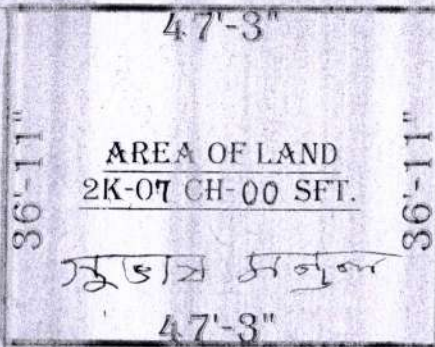 47'-3"
36'-11"
AREA OF LAND
2K-07 CH-00 SFT.
36'-11"
47'-3"